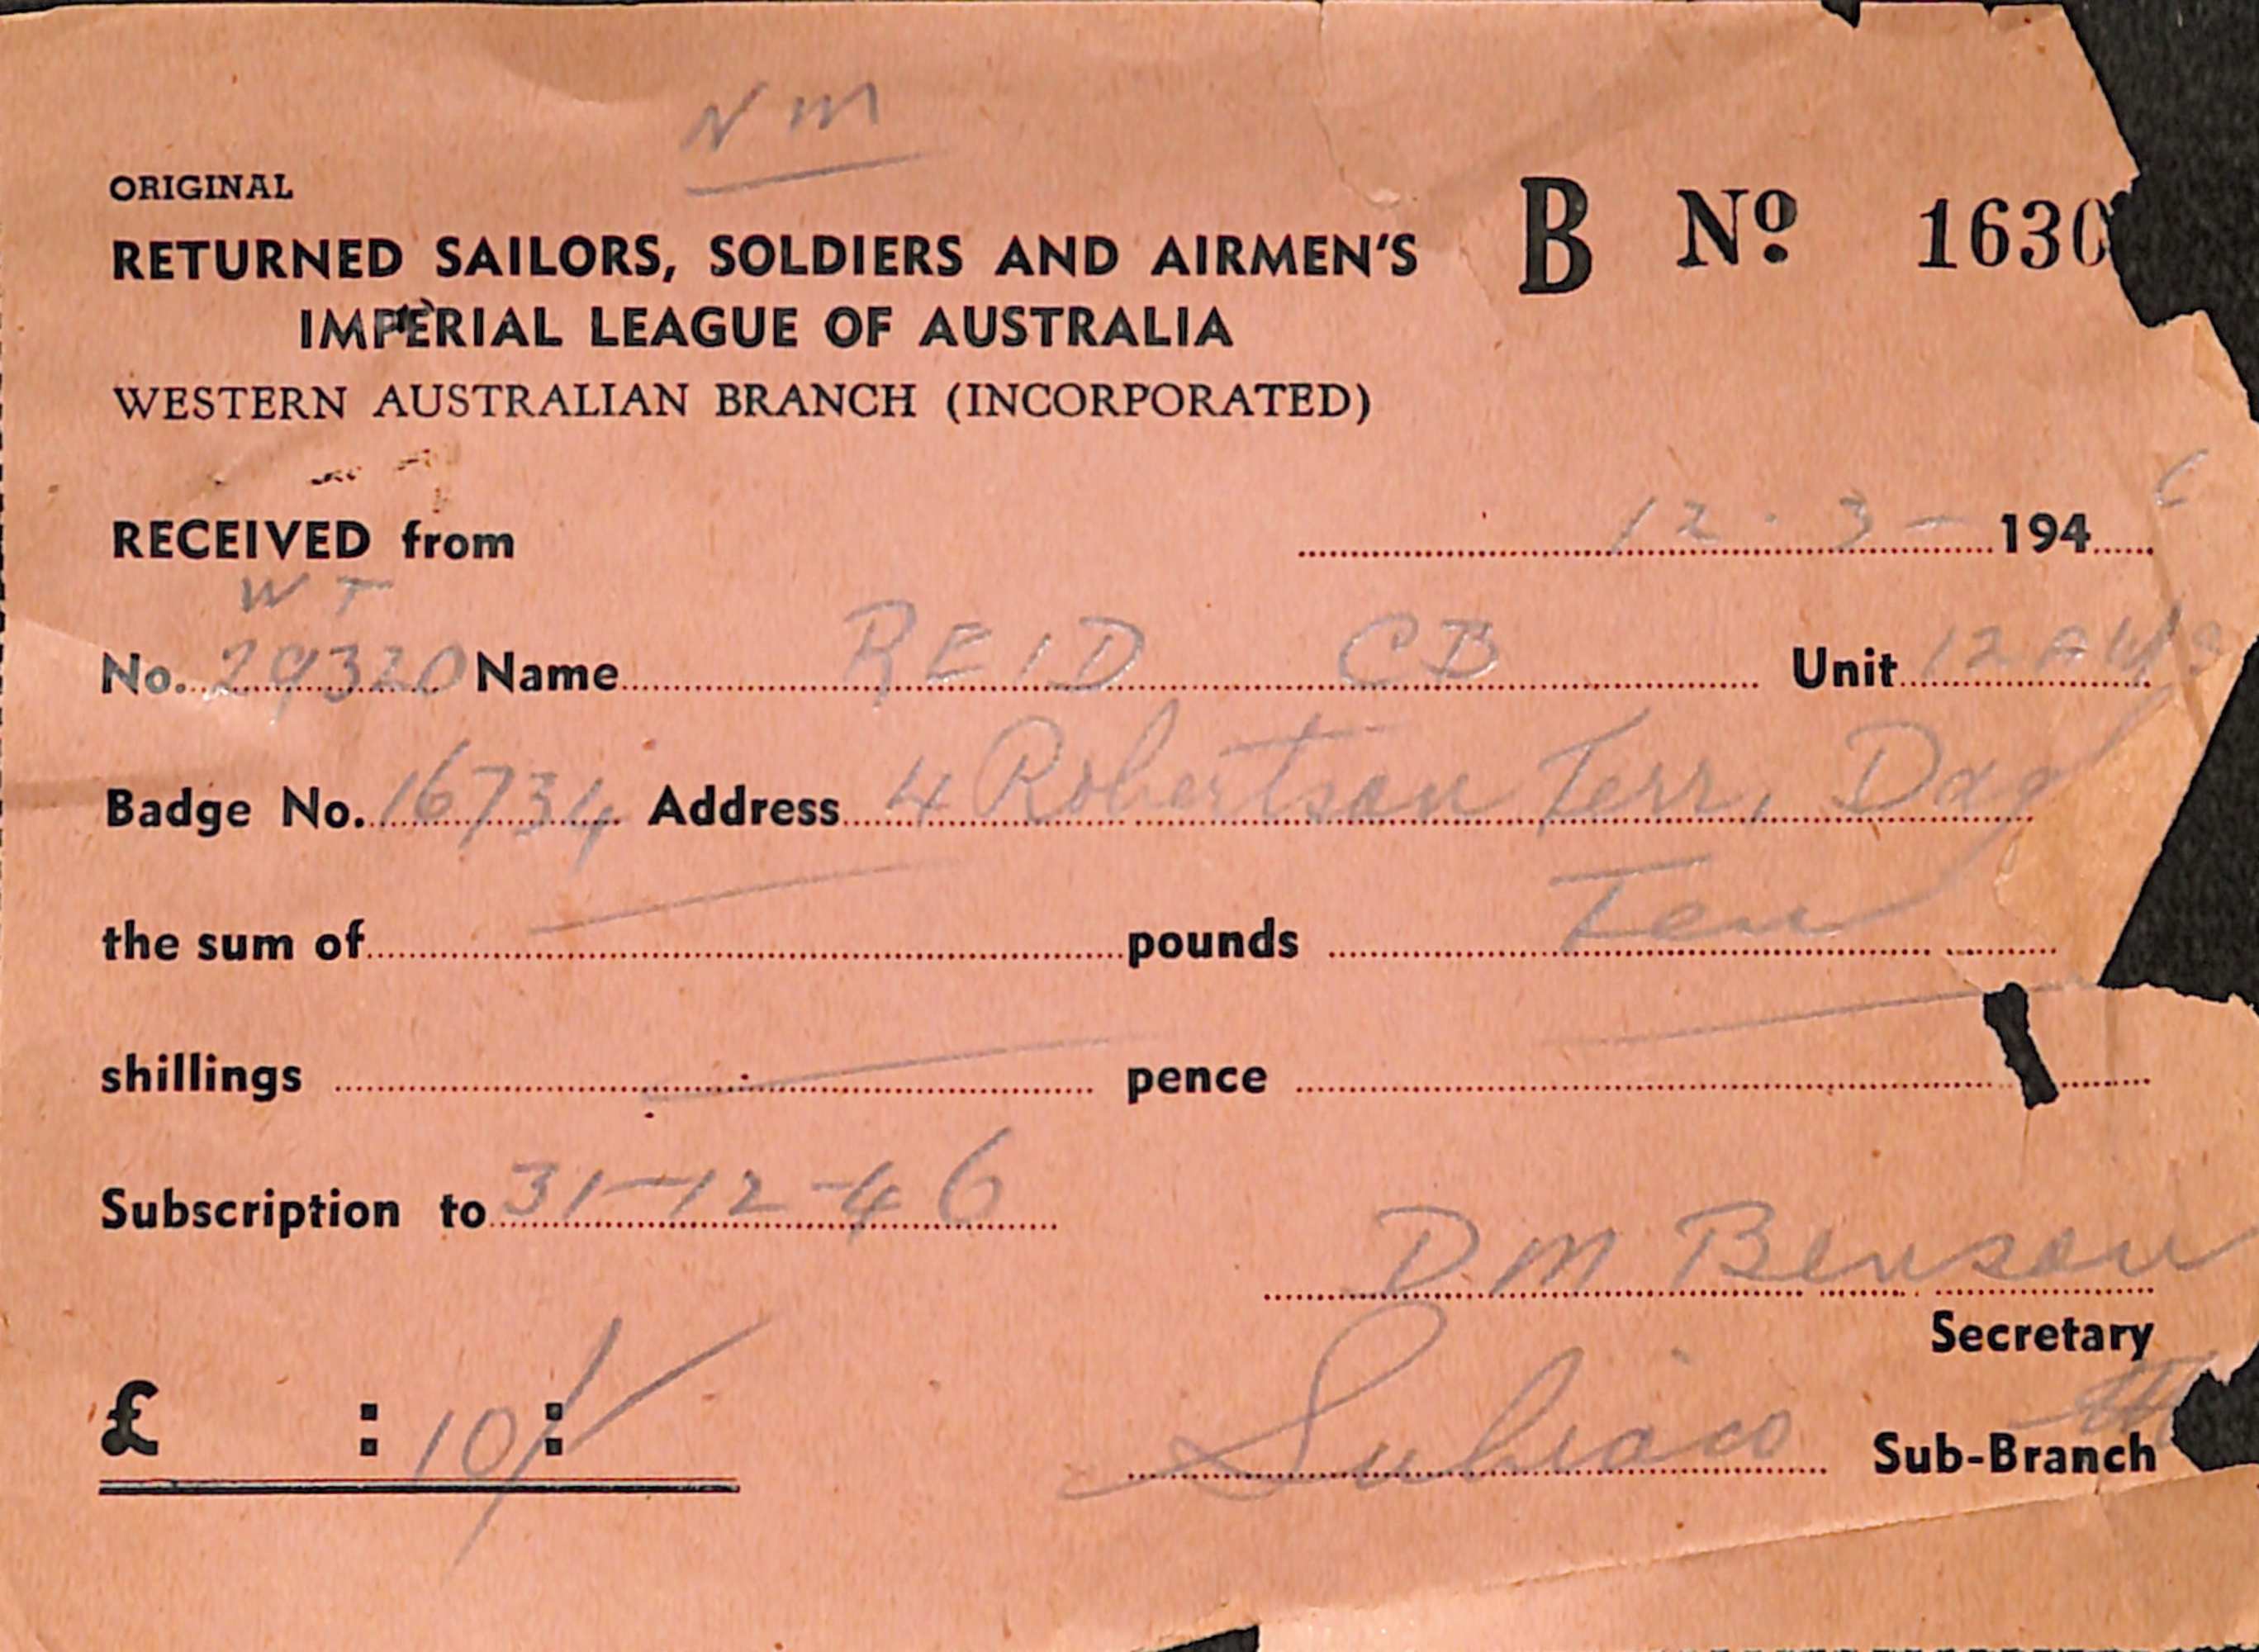 Nm
ORIGINAL
RETURNED SAILORS, SOLDIERS AND AIRMEN'S B Nº 1630
IMPERIAL LEAGUE OF AUSTRALIA
WESTERN AUSTRALIAN BRANCH (INCORPORATED)
RECEIVED from 12 . 3 - 194 6
W
No. 29320 Name REID CB Unit 12
Badge No. 16734 Address 4 Robertson Terr, Dag
the sum of pounds Ten
shillings pence
Subscription to 31-12-46
DM Benson
Secretary
£ : 10/ :
Subiaco Sub-Branch